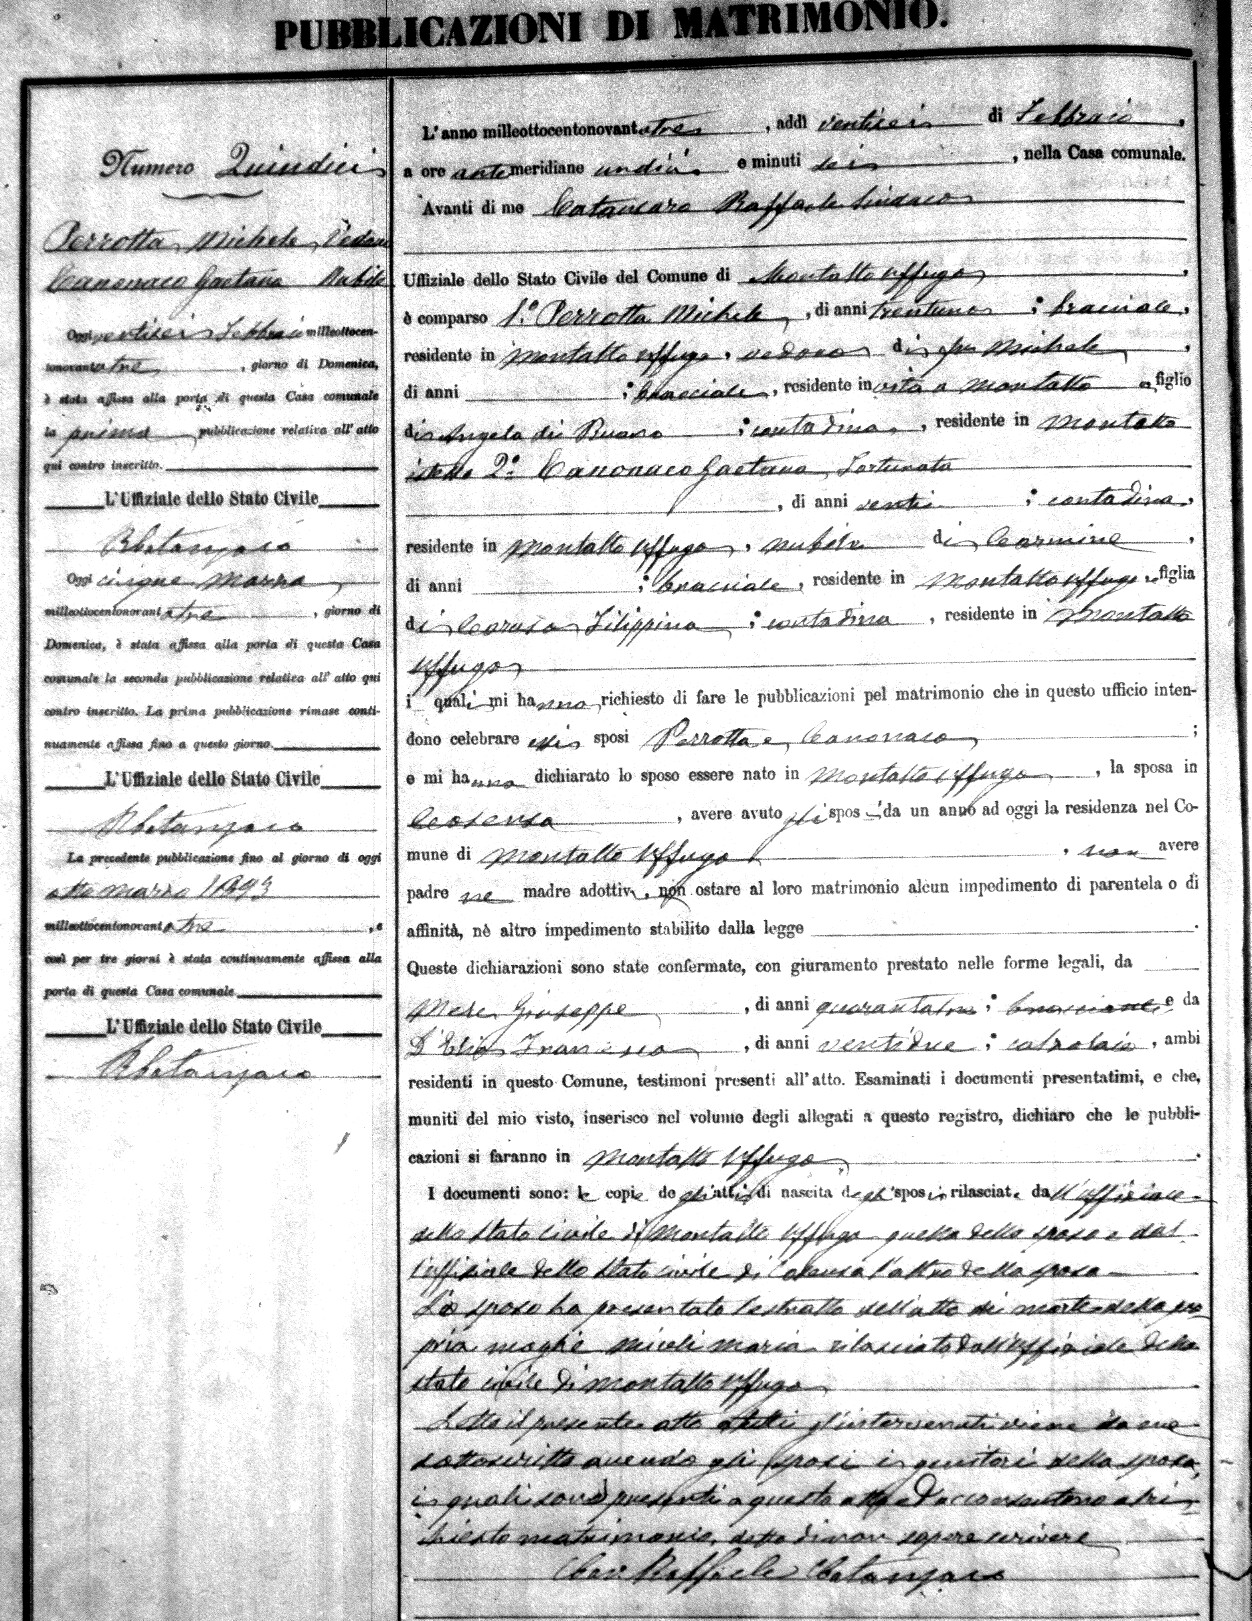 PUBBLICAZIONI DI MATRIMONIO.
Numero Quindici
Perrotta Michele, Vedovo
Canonaco Gaetana Nubile
Oggi ventisei Febbraio milleottocen-
tonovantatre, giorno di Domenica,
è stata affissa alla porta di questa Casa comunale
la prima pubblicazione relativa all'atto
qui contro inscritto.
L'Uffiziale dello Stato Civile
RCatanzaro
Oggi cinque Marzo
milleottocentonovantatre, giorno di
Domenica, è stata affissa alla porta di questa Casa
comunale la seconda pubblicazione relativa all'atto qui
contro inscritto. La prima pubblicazione rimase conti-
nuamente affissa fino a questo giorno.
L'Uffiziale dello Stato Civile
RCatanzaro
La precedente pubblicazione fino al giorno di oggi
otto marzo 1893
milleottocentonovantatre, e
così per tre giorni è stata continuamente affissa alla
porta di questa Casa comunale
L'Uffiziale dello Stato Civile
RCatanzaro
L'anno milleottocentonovantatre, addì ventisei di Febbraio,
a ore antemeridiane undici e minuti sei, nella Casa comunale.
Avanti di me Catanzaro Raffaele Sindaco
Uffiziale dello Stato Civile del Comune di Montalto Uffugo,
è comparso 1.° Perrotta Michele, di anni trentuno; bracciale,
residente in Montalto Uffugo, vedovo di fu Michele,
di anni ; bracciale, residente in vita a Montalto e figlio
di Angela di Buono ; contadina, residente in Montalto
2.° Canonaco Gaetana Fortunata
, di anni venti ; contadina,
residente in Montalto Uffugo, nubile di Carmine,
di anni ; bracciale, residente in Montalto Uffugo e figlia
di Caruso Filippina ; contadina, residente in Montalto
Uffugo
i quali mi hanno richiesto di fare le pubblicazioni pel matrimonio che in questo ufficio inten-
dono celebrare essi sposi Perrotta e Canonaco ;
e mi hanno dichiarato lo sposo essere nato in Montalto Uffugo, la sposa in
Cosenza, avere avuto gli sposi da un anno ad oggi la residenza nel Co-
mune di Montalto Uffugo, non avere
padre ne madre adottiv, non ostare al loro matrimonio alcun impedimento di parentela o di
affinità, nè altro impedimento stabilito dalla legge .
Queste dichiarazioni sono state confermate, con giuramento prestato nelle forme legali, da
Giuseppe, di anni ; e da
D'Elia Francesco, di anni ventidue ; calzolaio, ambi
residenti in questo Comune, testimoni presenti all'atto. Esaminati i documenti presentatimi, e che,
muniti del mio visto, inserisco nel volume degli allegati a questo registro, dichiaro che le pubbli-
cazioni si faranno in Montalto Uffugo.
I documenti sono: le copie degli atti di nascita degli sposi rilasciate dall'uffiziale
dello stato civile di Montalto Uffugo quella dello sposo e dal
l'uffiziale dello stato civile di Cosenza l'altro della sposa
Lo sposo ha presentato l'estratto dell'atto di morte della pro
pria moglie Miceli Maria rilasciato dall'uffiziale dello
stato civile di Montalto Uffugo
Letto il presente atto a tutti gl'intervenuti viene da me
sottoscritto avendo gli sposi i genitori della sposa,
i quali sono presenti a questo atto ed acconsentono al ri
chiesto matrimonio, detto di non sapere scrivere
Cav. Raffaele Catanzaro